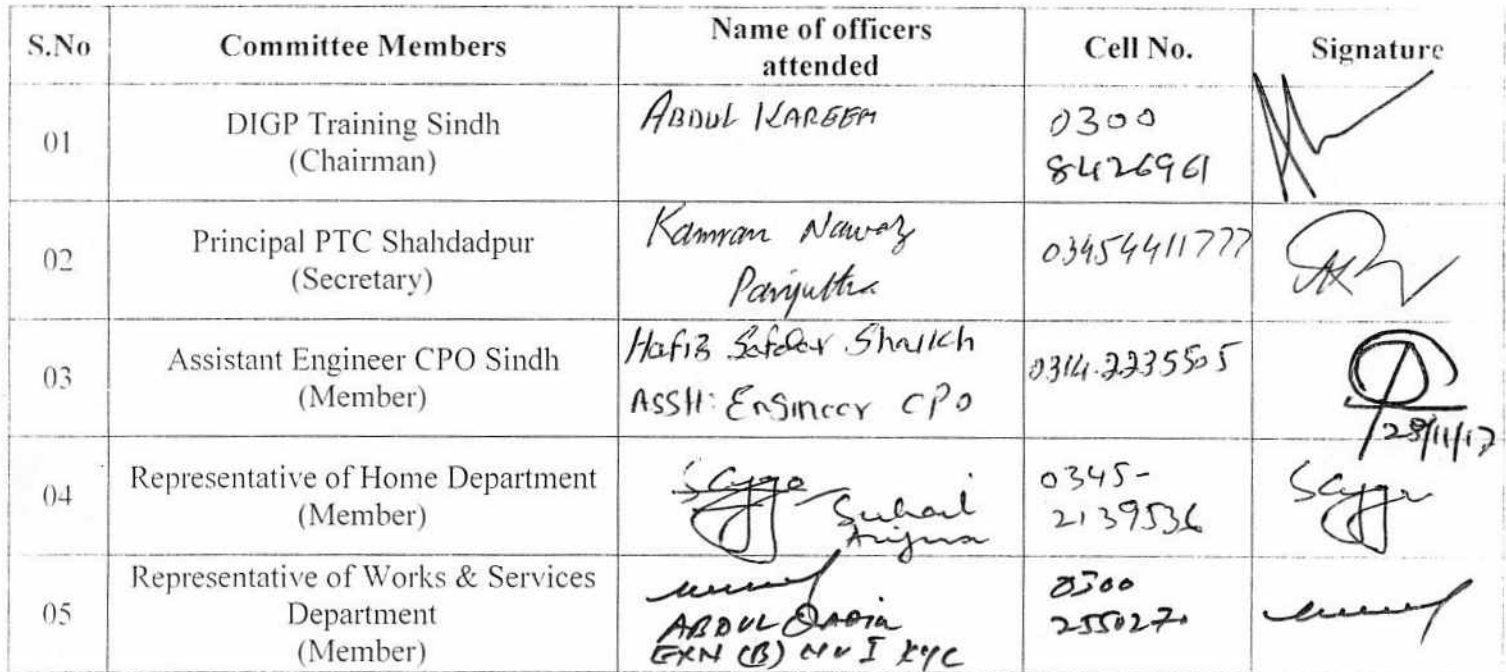 S.No Committee Members Name of officers attended Cell No. Signature
01 DIGP Training Sindh (Chairman) ABDUL KAREEM 0300 8426961
02 Principal PTC Shahdadpur (Secretary) Kamran Nawaz 03454411777
03 Assistant Engineer CPO Sindh (Member) Hafiz Safdar Shaikh ASStt: Engineer CPO 0314-2235505 28/11/17
04 Representative of Home Department (Member) Suhail 0345-2139536
05 Representative of Works & Services Department (Member) ABDUL QADIR EXN (B) 0300